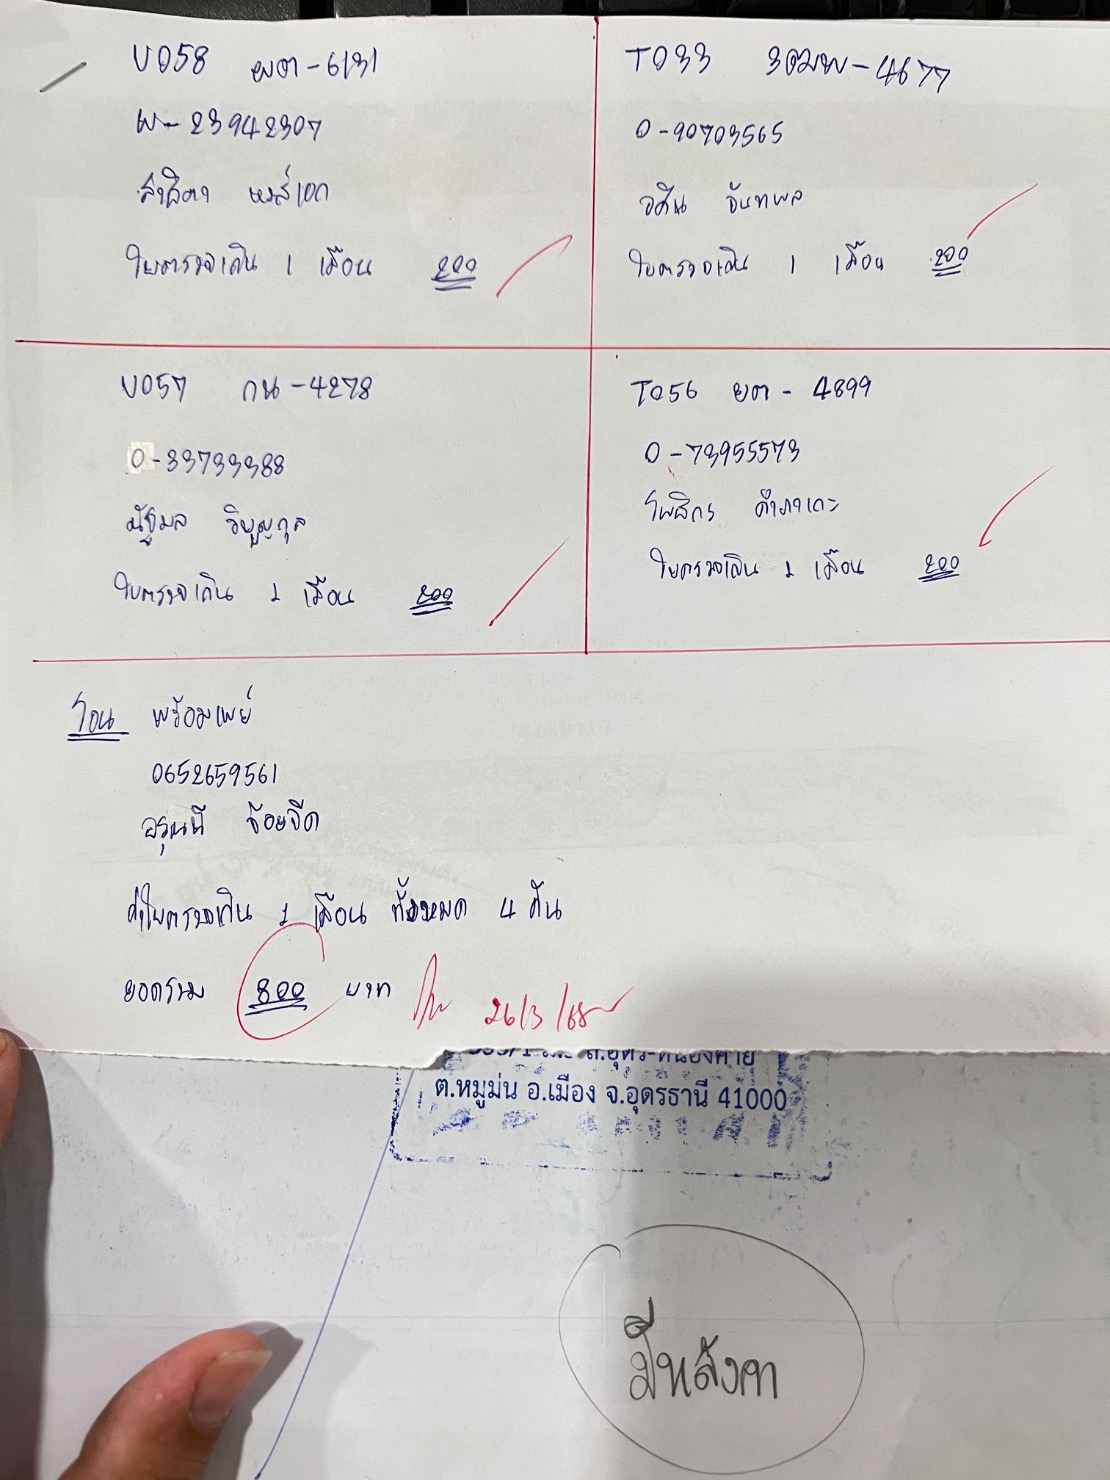 U058 ยตา-6131
ผ-23942307
ใบตรวจเกิน 1 เดือน 200
T033 3ฒพ-4677
0-90703565
ใบตรวจเกิน 1 เดือน 200
U057 กน-4278
0-33733388
ณัฐมล วิบูลกุล
ใบตรวจเกิน 1 เดือน 200
T056 ยตา-4899
0-73955573
ใบตรวจเกิน 1 เดือน 200
โอน พร้อมเพย์
0652659561
อรุณนี จ้อยจีด
ค่าใบตรวจเกิน 1 เดือน ทั้งหมด 4 คัน
ยอดรวม 800 บาท 26/3/68
ต.หมูม่น อ.เมือง จ.อุดรธานี 41000
มีหลังคา